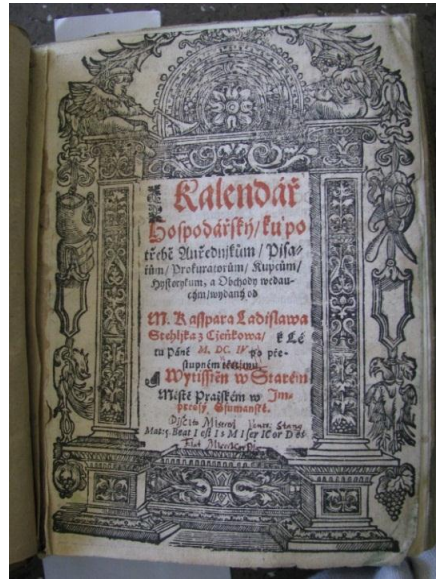 Kalendář
Hospodářský/ ku po
třebě Auředlnjkům/ Pjsa-
řům/ Prokuratorům/ Kupcům/
Hystorykum, a Obchody wedau-
cým/ wydaný od
M. Kasspara Ladislawa
Stehljka z Čeňkowa/ k Lé
tu Páně M. DC. IV po pře-
stupném
Wytisstěn w Starém
Městě Pražském w Jm-
pressy Ssumanské.